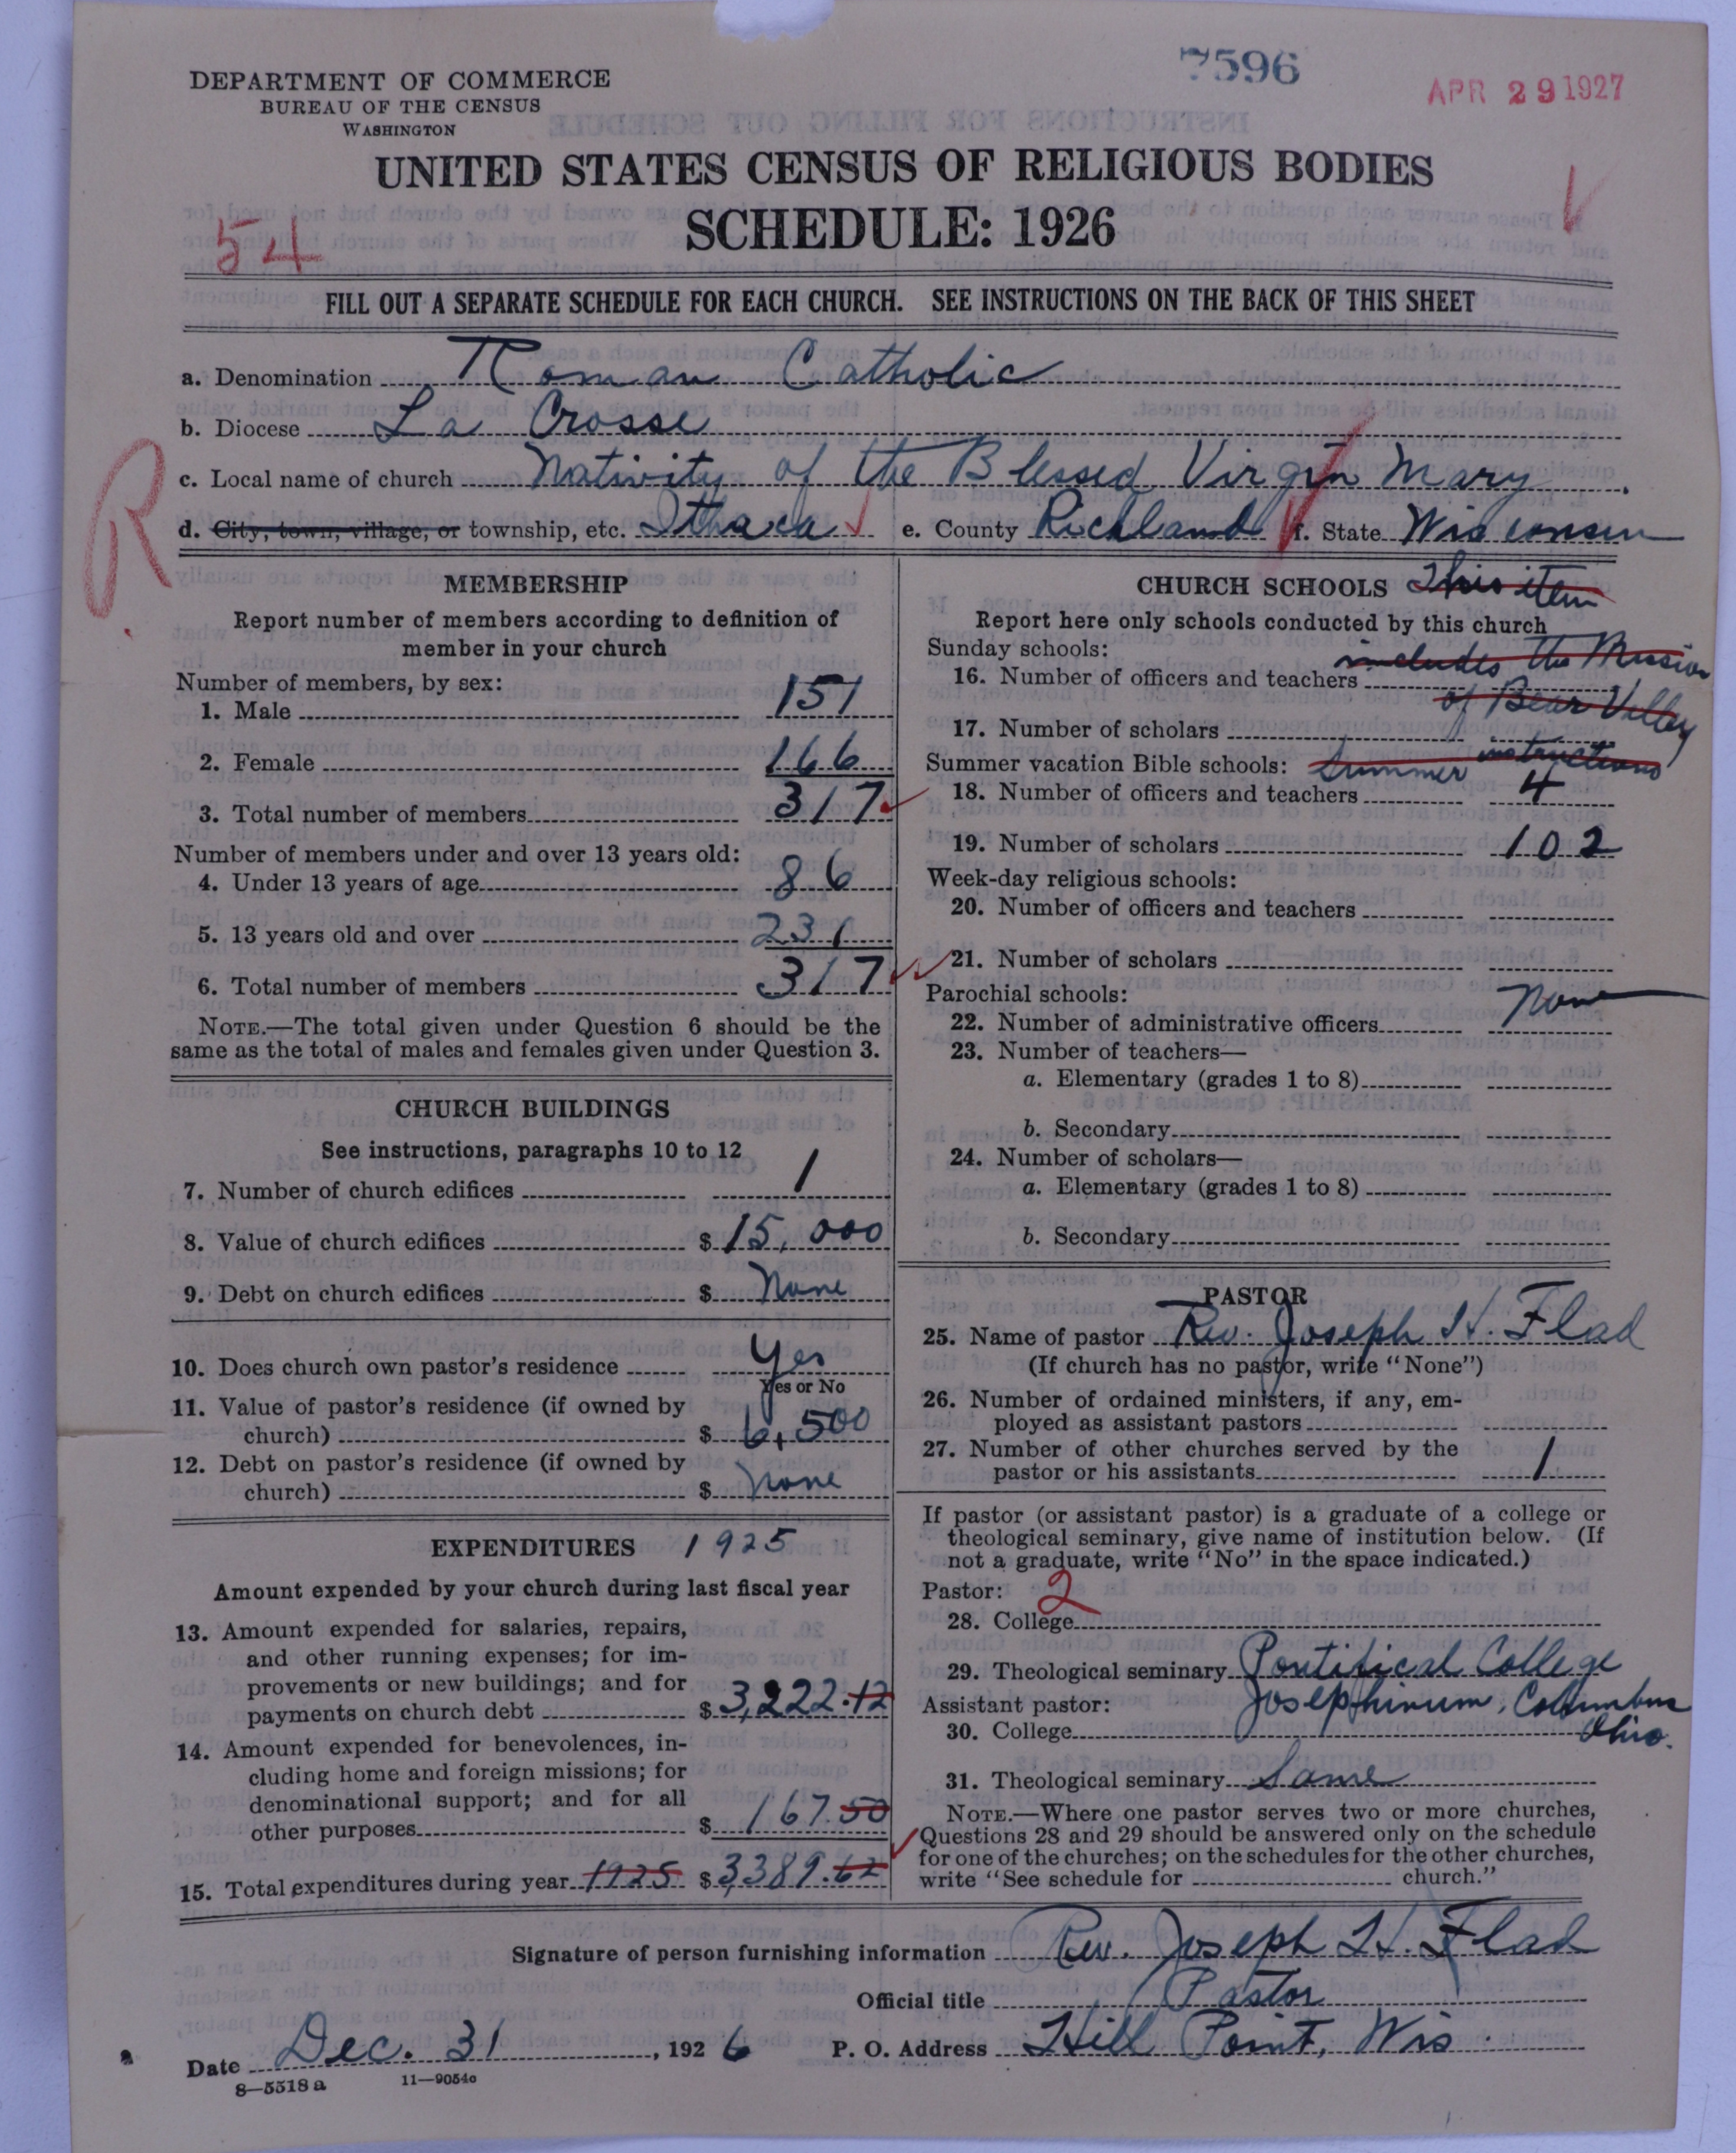 7596
APR 29 1927
DEPARTMENT OF COMMERCE
BUREAU OF THE CENSUS
WASHINGTON
UNITED STATES CENSUS OF RELIGIOUS BODIES
SCHEDULE: 1926
54
FILL OUT A SEPARATE SCHEDULE FOR EACH CHURCH. SEE INSTRUCTIONS ON THE BACK OF THIS SHEET
a. Denomination Roman Catholic
b. Diocese La Crosse
c. Local name of church Nativity of the Blessed Virgin Mary
R
d. City, town, village, or township, etc. Ithaca e. County Richland f. State Wisconsin
MEMBERSHIP
Report number of members according to definition of
member in your church
Number of members, by sex:
1. Male 151
2. Female 166
3. Total number of members 317
Number of members under and over 13 years old:
4. Under 13 years of age 86
5. 13 years old and over 231
6. Total number of members 317
NOTE.—The total given under Question 6 should be the
same as the total of males and females given under Question 3.
CHURCH BUILDINGS
See instructions, paragraphs 10 to 12
7. Number of church edifices 1
8. Value of church edifices $ 15,000
9. Debt on church edifices $ None
10. Does church own pastor's residence Yes
Yes or No
11. Value of pastor's residence (if owned by
church) $ 6,500
12. Debt on pastor's residence (if owned by
church) $ None
EXPENDITURES 1925
Amount expended by your church during last fiscal year
13. Amount expended for salaries, repairs,
and other running expenses; for im-
provements or new buildings; and for
payments on church debt $ 3,222.12
14. Amount expended for benevolences, in-
cluding home and foreign missions; for
denominational support; and for all
other purposes $ 167.50
15. Total expenditures during year 1925 $ 3389.62
CHURCH SCHOOLS This item
Report here only schools conducted by this church
Sunday schools: includes the Mission
16. Number of officers and teachers
of Bear Valley
17. Number of scholars
Summer vacation Bible schools: Summer instructions
18. Number of officers and teachers 4
19. Number of scholars 102
Week-day religious schools:
20. Number of officers and teachers
21. Number of scholars
Parochial schools: None
22. Number of administrative officers
23. Number of teachers—
a. Elementary (grades 1 to 8)
b. Secondary
24. Number of scholars—
a. Elementary (grades 1 to 8)
b. Secondary
PASTOR
25. Name of pastor Rev. Joseph H. Flad
(If church has no pastor, write "None")
26. Number of ordained ministers, if any, em-
ployed as assistant pastors
27. Number of other churches served by the
pastor or his assistants 1
If pastor (or assistant pastor) is a graduate of a college or
theological seminary, give name of institution below. (If
not a graduate, write "No" in the space indicated.)
Pastor: 2
28. College
29. Theological seminary Pontifical College
Assistant pastor: Josephinum, Columbus
30. College Ohio.
31. Theological seminary Same
NOTE.—Where one pastor serves two or more churches,
Questions 28 and 29 should be answered only on the schedule
for one of the churches; on the schedules for the other churches,
write "See schedule for church."
Signature of person furnishing information Rev. Joseph H. Flad
Official title Pastor
Date Dec. 31, 1926 P. O. Address Hill Point, Wis.
8—5518 a 11—9054a